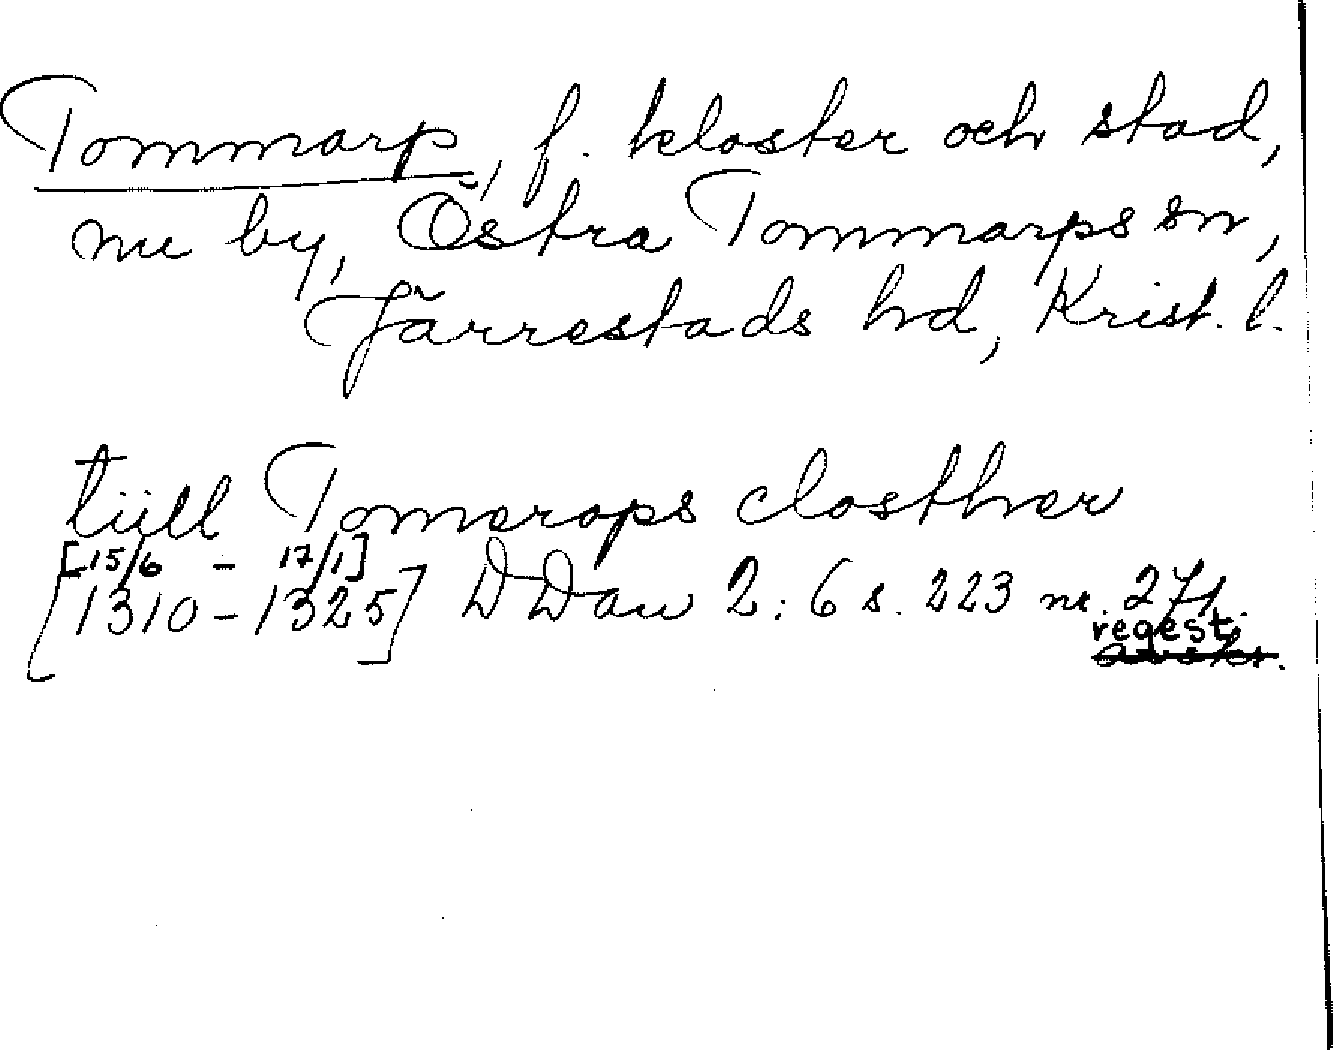 Tommarp, f. kloster och stad,
nu by, Östra Tommarps sn,
Järrestads hd, Krist. l.
tiill Tomerops closther
[15/6 - 17/1]
[1310-1325] DDan 2:6 s. 223 nr. 271.
regest.
avskr.